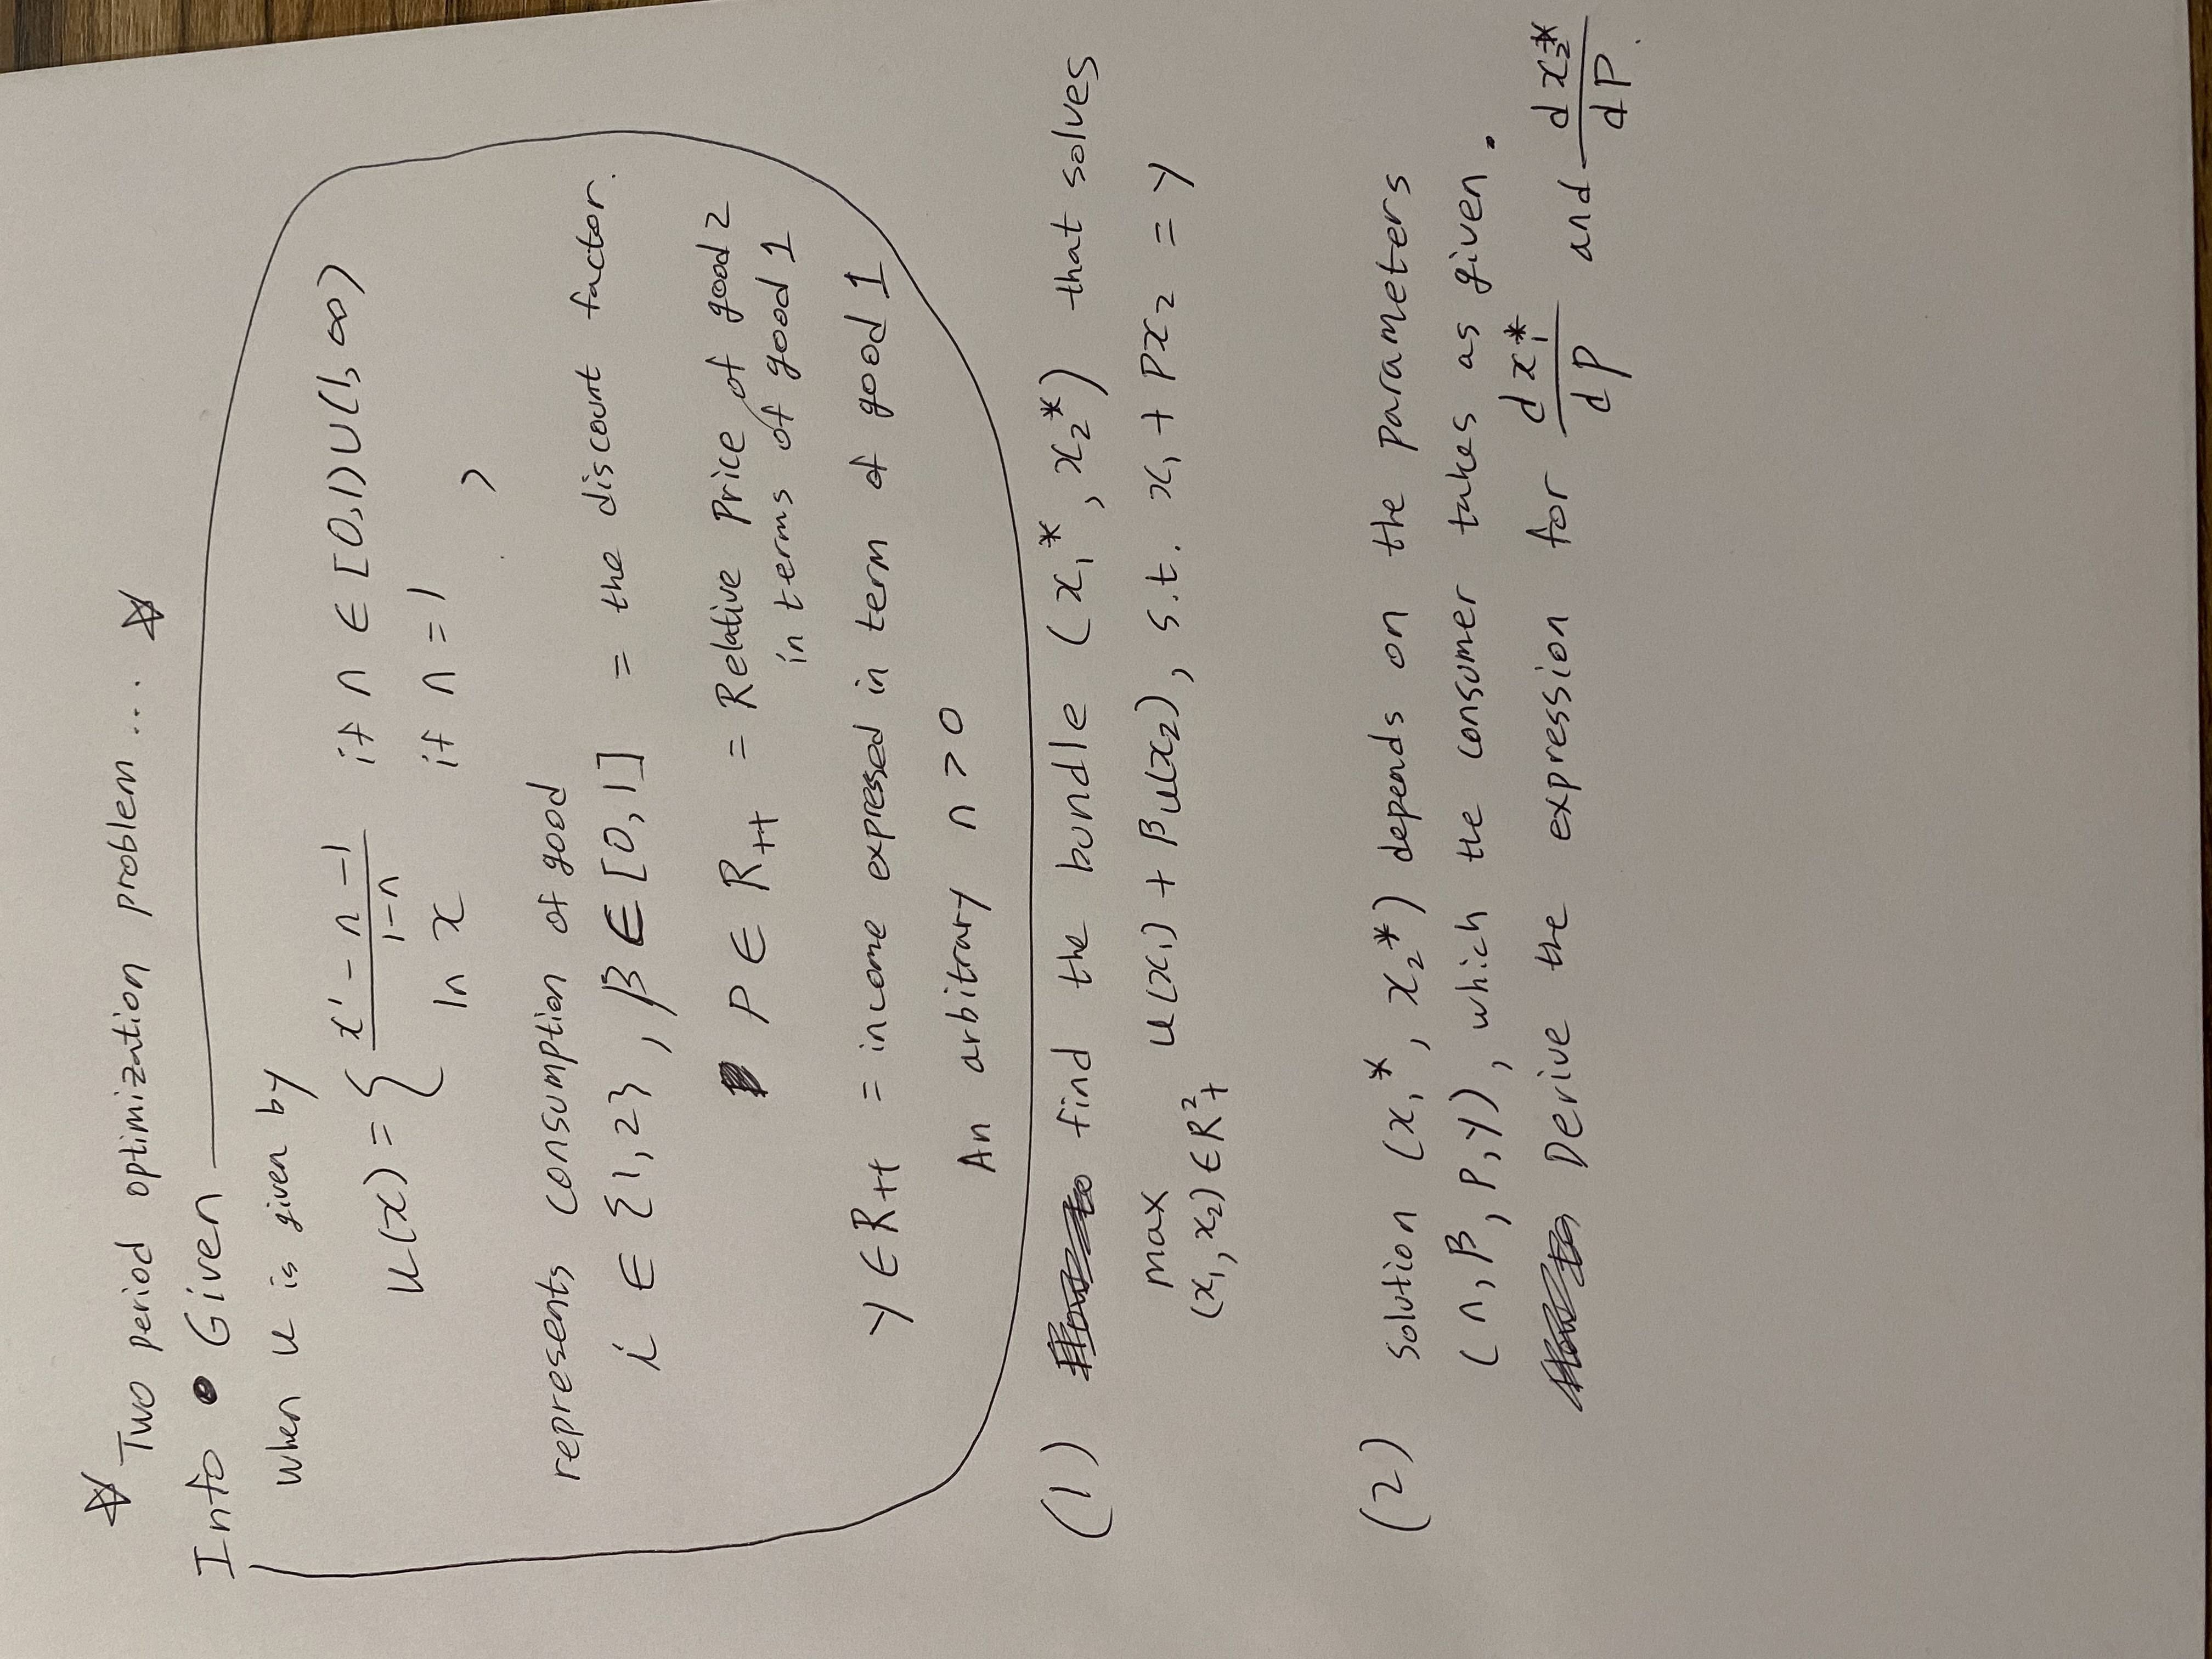 ☆ Two period optimization problem... ☆
Info • Given
when u is given by
u(x) = { x^1-n -1 / 1-n if n ∈ [0,1) ∪ (1,∞)
ln x if n = 1 ,
represents consumption of good
i ∈ {1,2}, β ∈ [0,1] = the discount factor.
P ∈ R++ = Relative Price of good 2
in terms of good 1
y ∈ R++ = income expressed in term of good 1
An arbitrary n > 0
(1) find the bundle (x₁*, x₂*) that solves
max u(x₁) + βu(x₂), s.t. x₁ + Px₂ = y
(x₁, x₂) ∈ R²₊
(2) solution (x₁*, x₂*) depends on the parameters
(n, β, P, y), which the consumer takes as given.
Derive the expression for dx₁*/dP and dx₂*/dP.